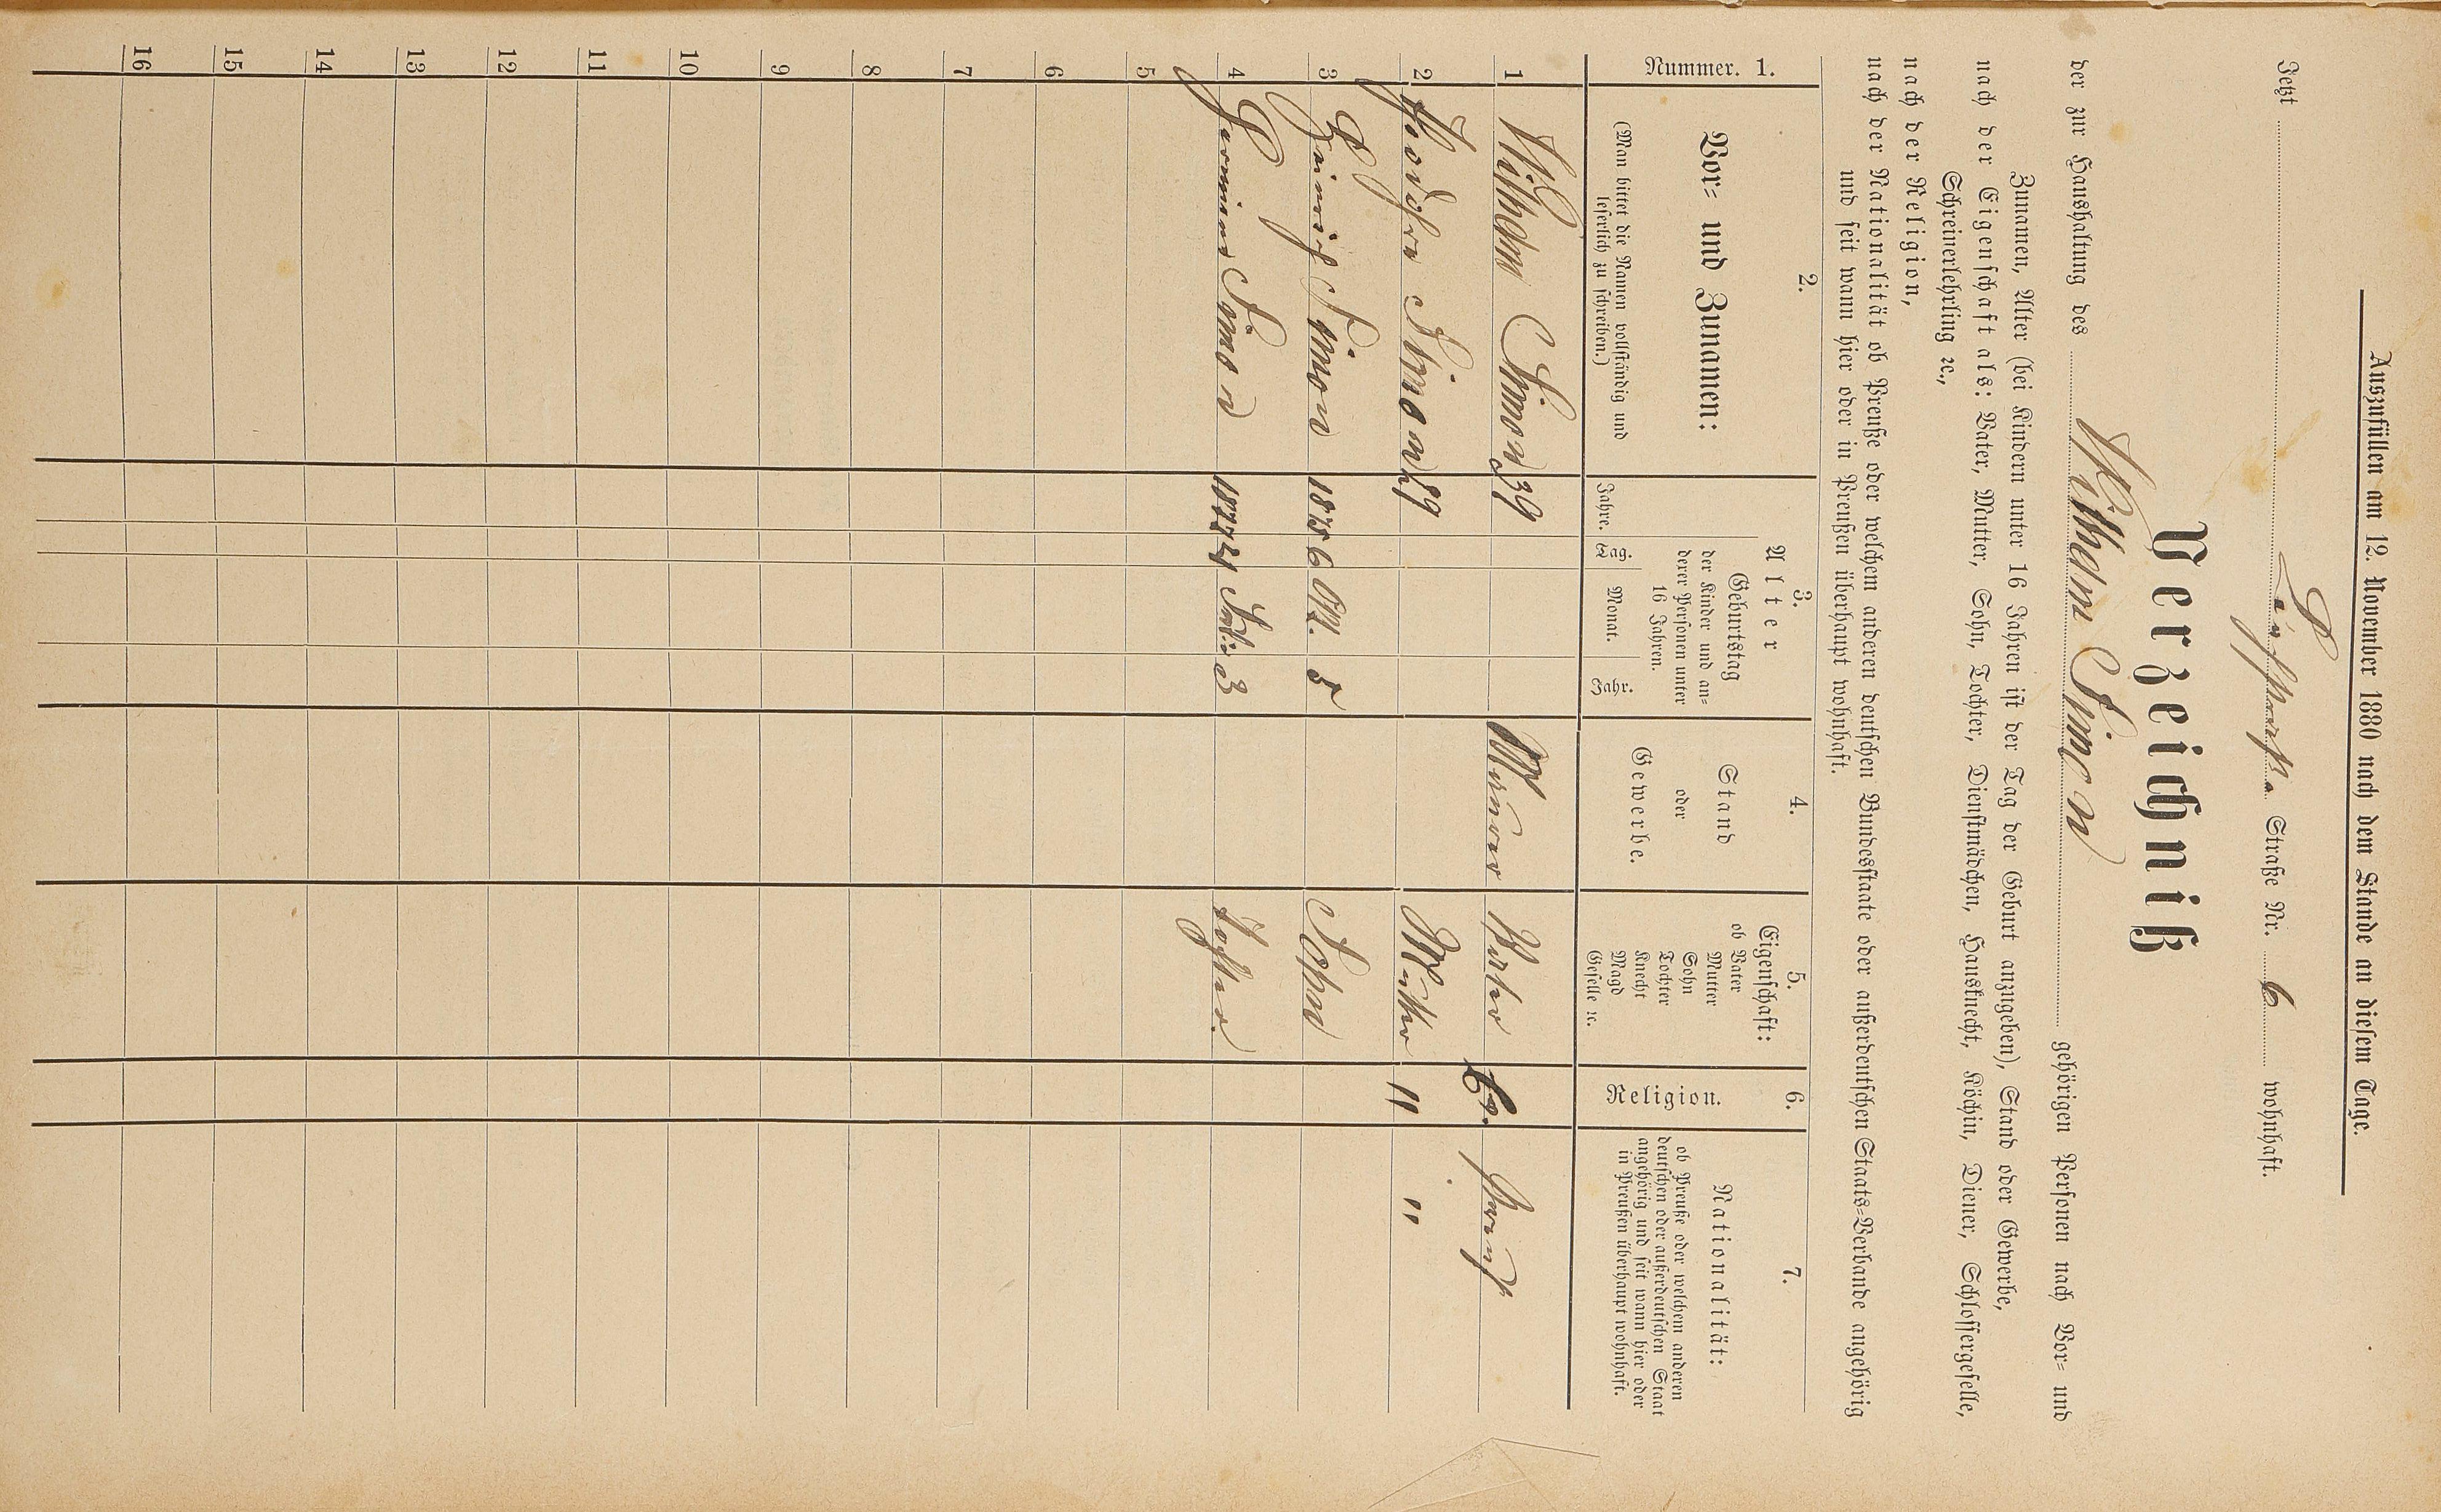 Auszufüllen am 12. November 1880 nach dem Stande an diesem Tage.
Jetzt Straße Nr. 6 wohnhaft.
Verzeichniß
der zur Haushaltung des Wilhem Simon gehörigen Personen nach Vor- und
Zunamen, Alter (bei Kindern unter 16 Jahren ist der Tag der Geburt anzugeben), Stand oder Gewerbe,
nach der Eigenschaft als: Vater, Mutter, Sohn, Tochter, Dienstmädchen, Hausknecht, Köchin, Diener, Schlossergeselle,
Schreinerlehrling ꝛc.,
nach der Religion,
nach der Nationalität ob Preuße oder welchem anderen deutschen Bundesstaate oder außerdeutschen Staats-Verbande angehörig
und seit wann hier oder in Preußen überhaupt wohnhaft.
Nummer. 1.
2.
Vor- und Zunamen:
(Man bittet die Namen vollständig und
leserlich zu schreiben.)
3.
Alter
Geburtstag
der Kinder und an-
derer Personen unter
16 Jahren.
Jahre. Tag. Monat. Jahr.
4.
Stand
oder
Gewerbe.
5.
Eigenschaft:
ob Vater
Mutter
Sohn
Tochter
Knecht
Magd
Geselle ꝛc.
6.
Religion.
7.
Nationalität:
ob Preuße oder welchem anderen
deutschen oder außerdeutschen Staat
angehörig und seit wann hier oder
in Preußen überhaupt wohnhaft.
1 Wilhem Simon 39 Maurer Vater Ev. Preuß
2 Simon 29 Mutter " "
3 Heinrich Simon 1875 6 5 Sohn
4 Simon 1877 21 Juli 3 Tochter
5
6
7
8
9
10
11
12
13
14
15
16